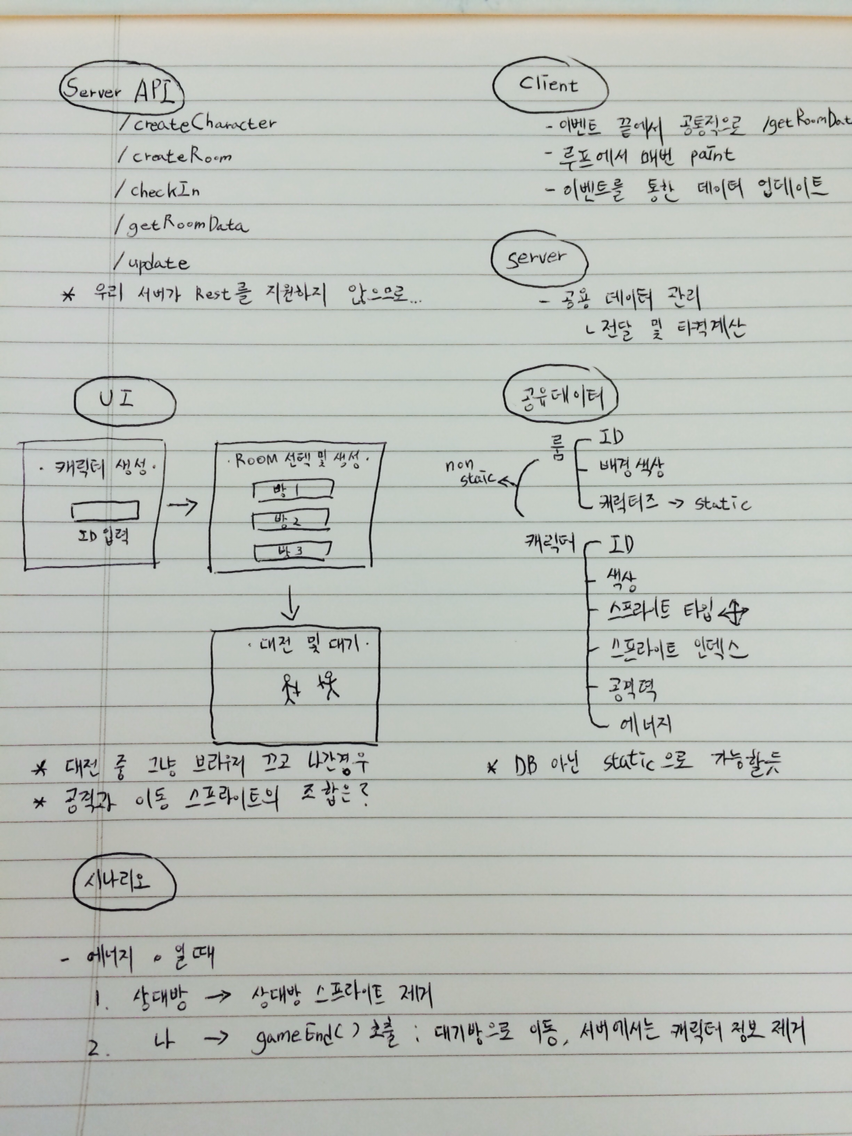 Server API
/createCharacter
/createRoom
/checkIn
/getRoomData
/update
* 우리 서버가 Rest를 지원하지 않으므로...
Client
- 이벤트 끝에서 공통적으로 /getRoomDat
- 루프에서 매번 paint
- 이벤트를 통한 데이터 업데이트
Server
- 공용 데이터 관리
ㄴ 전달 및 타격계산
UI
· 캐릭터 생성 ·
ID 입력
→
· ROOM 선택 및 생성 ·
방 1
방 2
방 3
↓
· 대전 및 대기 ·
* 대전 중 그냥 브라우저 끄고 나간경우
* 공격과 이동 스프라이트의 조합은?
공유데이터
non
staic ←
룸
ID
배경색상
캐릭터즈 → static
캐릭터
ID
색상
스프라이트 타입
스프라이트 인덱스
공격력
에너지
* DB 아닌 static으로 가능할듯
시나리오
- 에너지 0 일때
1. 상대방 → 상대방 스프라이트 제거
2. 나 → gameEnd() 호출 : 대기방으로 이동, 서버에서는 캐릭터 정보 제거